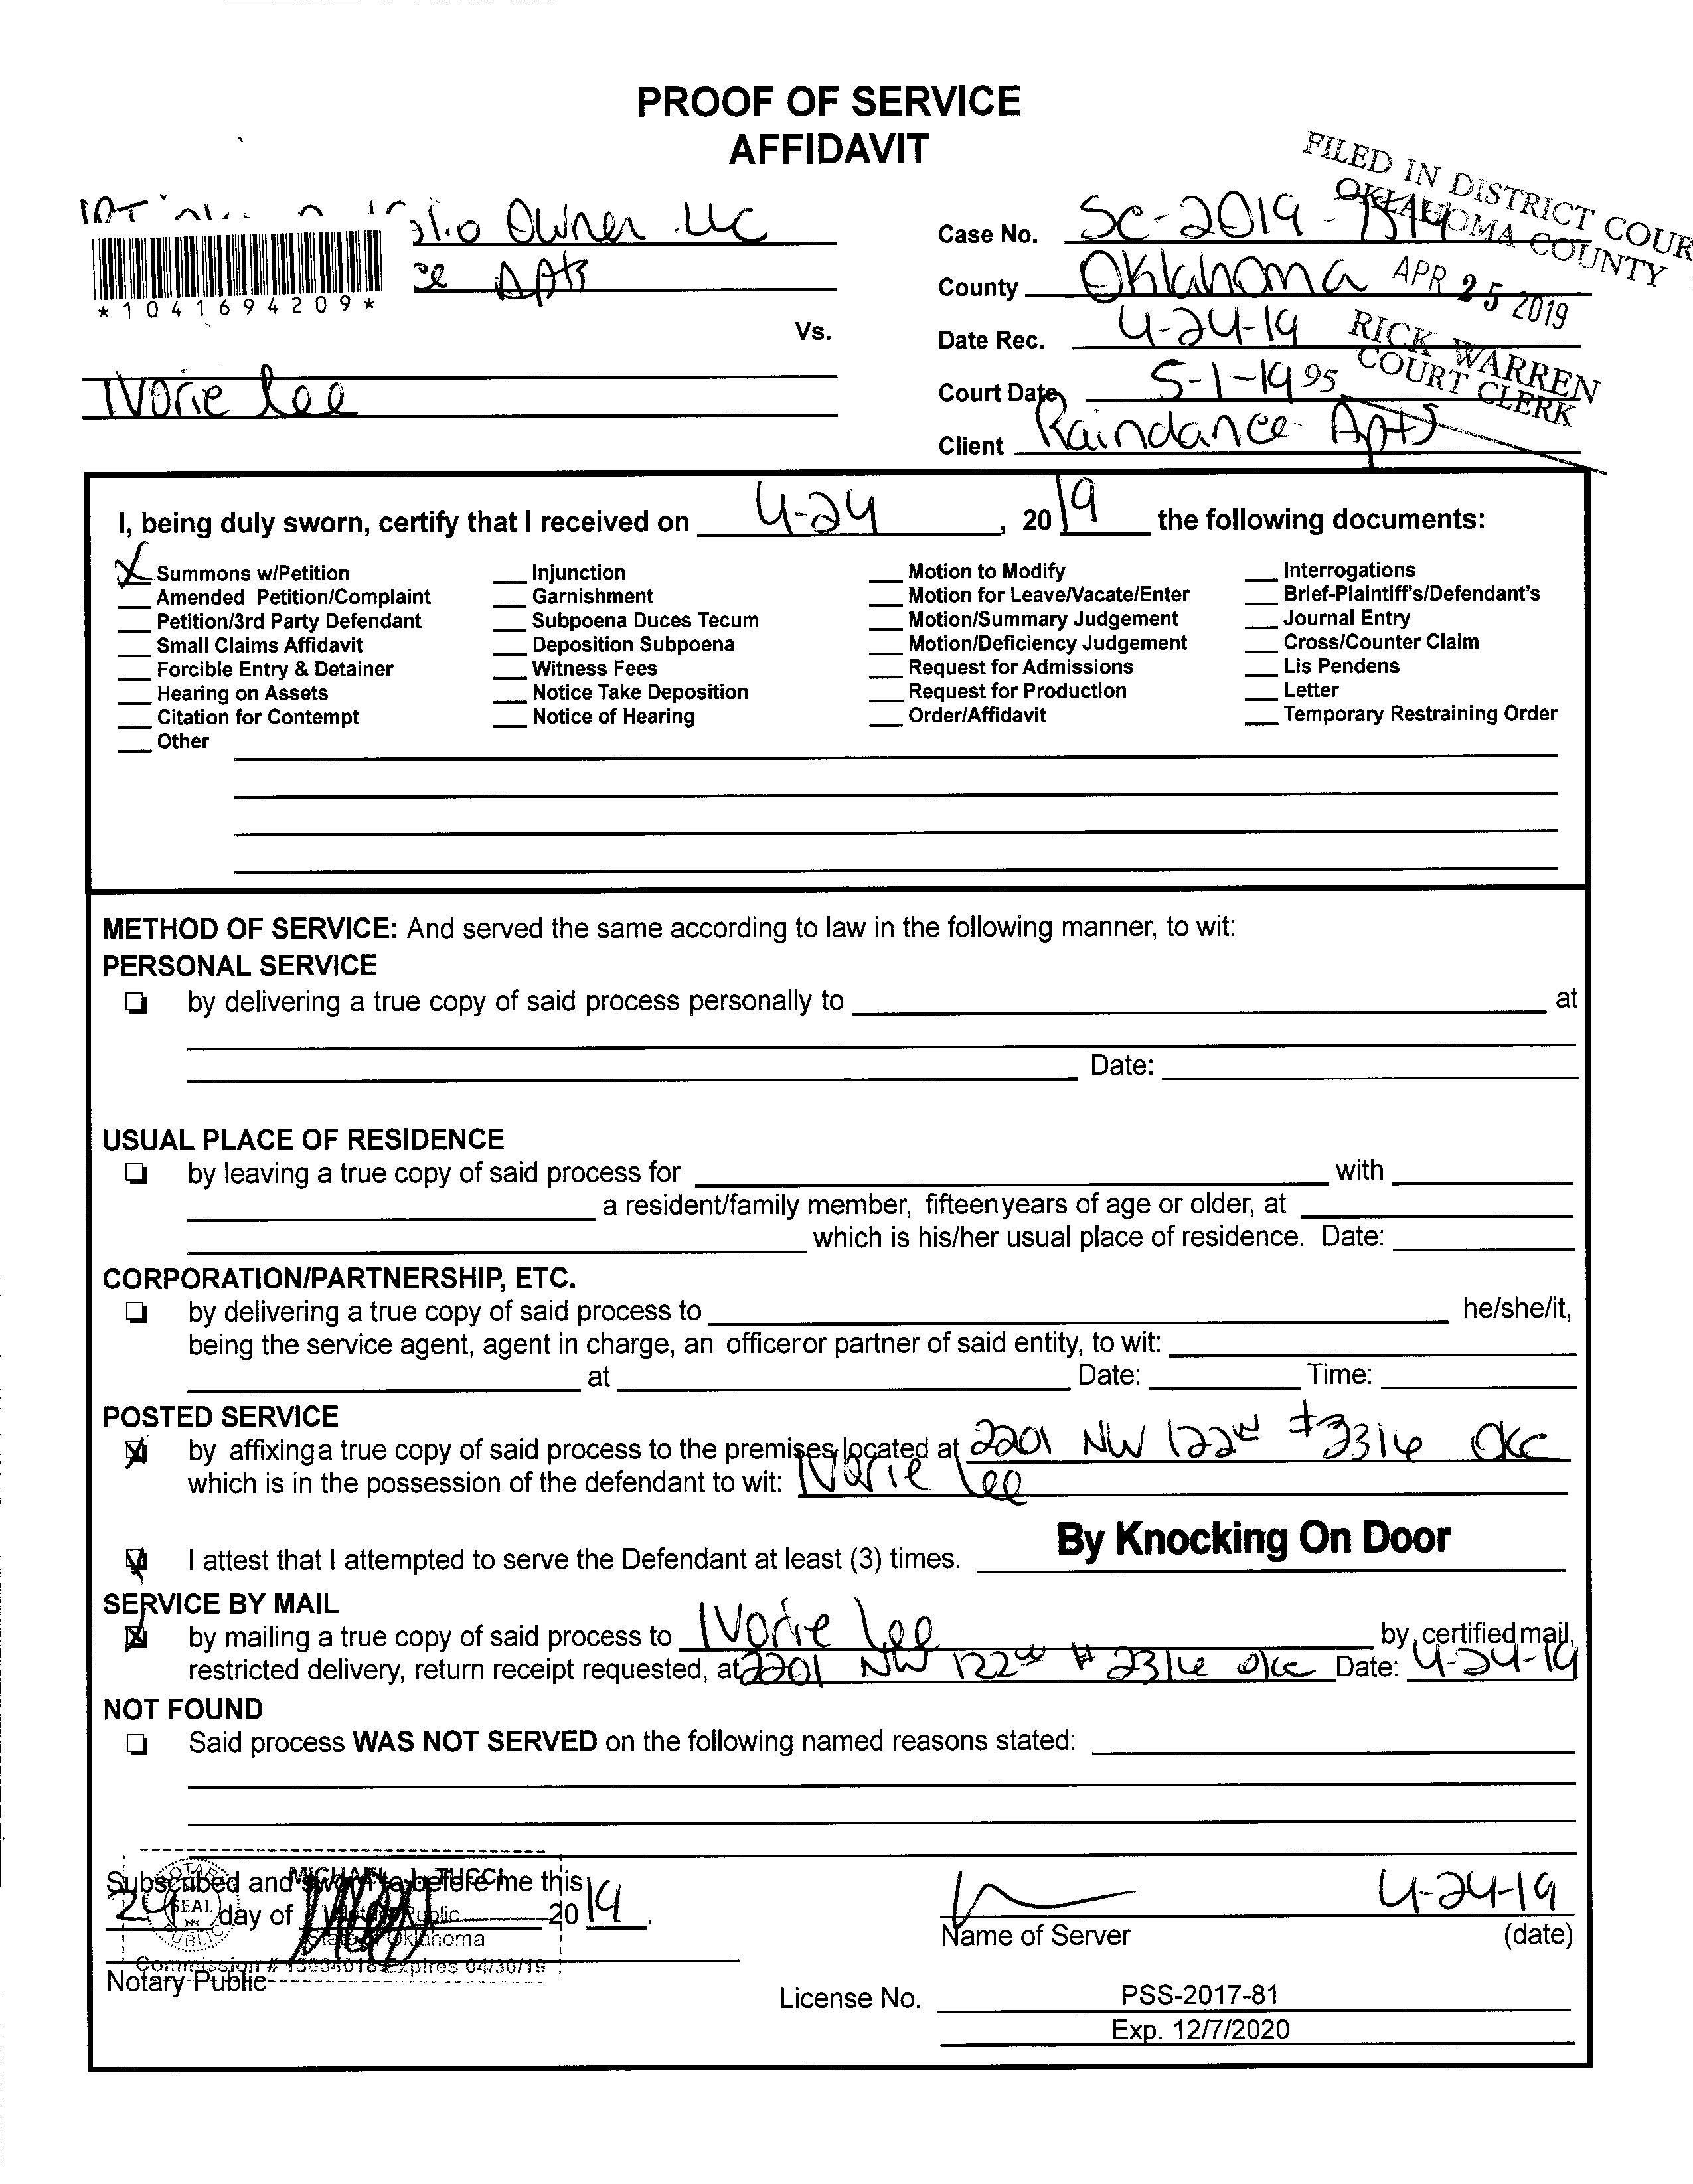 PROOF OF SERVICE
AFFIDAVIT
FILED IN DISTRICT COUR
OKLAHOMA COUNTY
APR 25 2019
RICK WARREN
COURT CLERK
95
Owner LLC
Apts
*1041694209*
Vs.
Ivorie Lee
Case No. SC-2019-
County Oklahoma
Date Rec. 4-24-19
Court Date 5-1-19
Client Raindance Apts
I, being duly sworn, certify that I received on 4-24, 2019 the following documents:
X Summons w/Petition
Amended Petition/Complaint
Petition/3rd Party Defendant
Small Claims Affidavit
Forcible Entry & Detainer
Hearing on Assets
Citation for Contempt
Other
Injunction
Garnishment
Subpoena Duces Tecum
Deposition Subpoena
Witness Fees
Notice Take Deposition
Notice of Hearing
Motion to Modify
Motion for Leave/Vacate/Enter
Motion/Summary Judgement
Motion/Deficiency Judgement
Request for Admissions
Request for Production
Order/Affidavit
Interrogations
Brief-Plaintiff's/Defendant's
Journal Entry
Cross/Counter Claim
Lis Pendens
Letter
Temporary Restraining Order
METHOD OF SERVICE: And served the same according to law in the following manner, to wit:
PERSONAL SERVICE
by delivering a true copy of said process personally to at
Date:
USUAL PLACE OF RESIDENCE
by leaving a true copy of said process for with
a resident/family member, fifteen years of age or older, at
which is his/her usual place of residence. Date:
CORPORATION/PARTNERSHIP, ETC.
by delivering a true copy of said process to he/she/it,
being the service agent, agent in charge, an officer or partner of said entity, to wit:
at Date: Time:
POSTED SERVICE
by affixing a true copy of said process to the premises located at 2201 NW 122nd #2316 OKC
which is in the possession of the defendant to wit: Ivorie Lee
I attest that I attempted to serve the Defendant at least (3) times. By Knocking On Door
SERVICE BY MAIL
by mailing a true copy of said process to Ivorie Lee by certified mail,
restricted delivery, return receipt requested, at 2201 NW 122nd # 2316 OKC Date: 4-24-19
NOT FOUND
Said process WAS NOT SERVED on the following named reasons stated:
Subscribed and sworn to before me this
24 day of 2019.
Notary Public
MICHAEL J. TUCCI
Notary Public
State of Oklahoma
Commission # 15004018 Expires 04/30/19
NOTARY PUBLIC
SEAL
4-24-19
Name of Server (date)
License No. PSS-2017-81
Exp. 12/7/2020